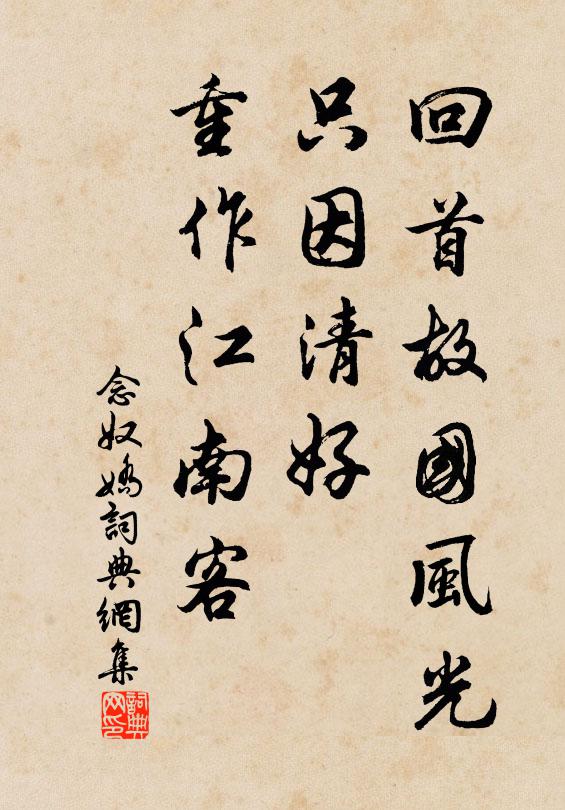 回首故國風光
只因清好
重作江南客
念奴嬌詞典網集
詞典
网印